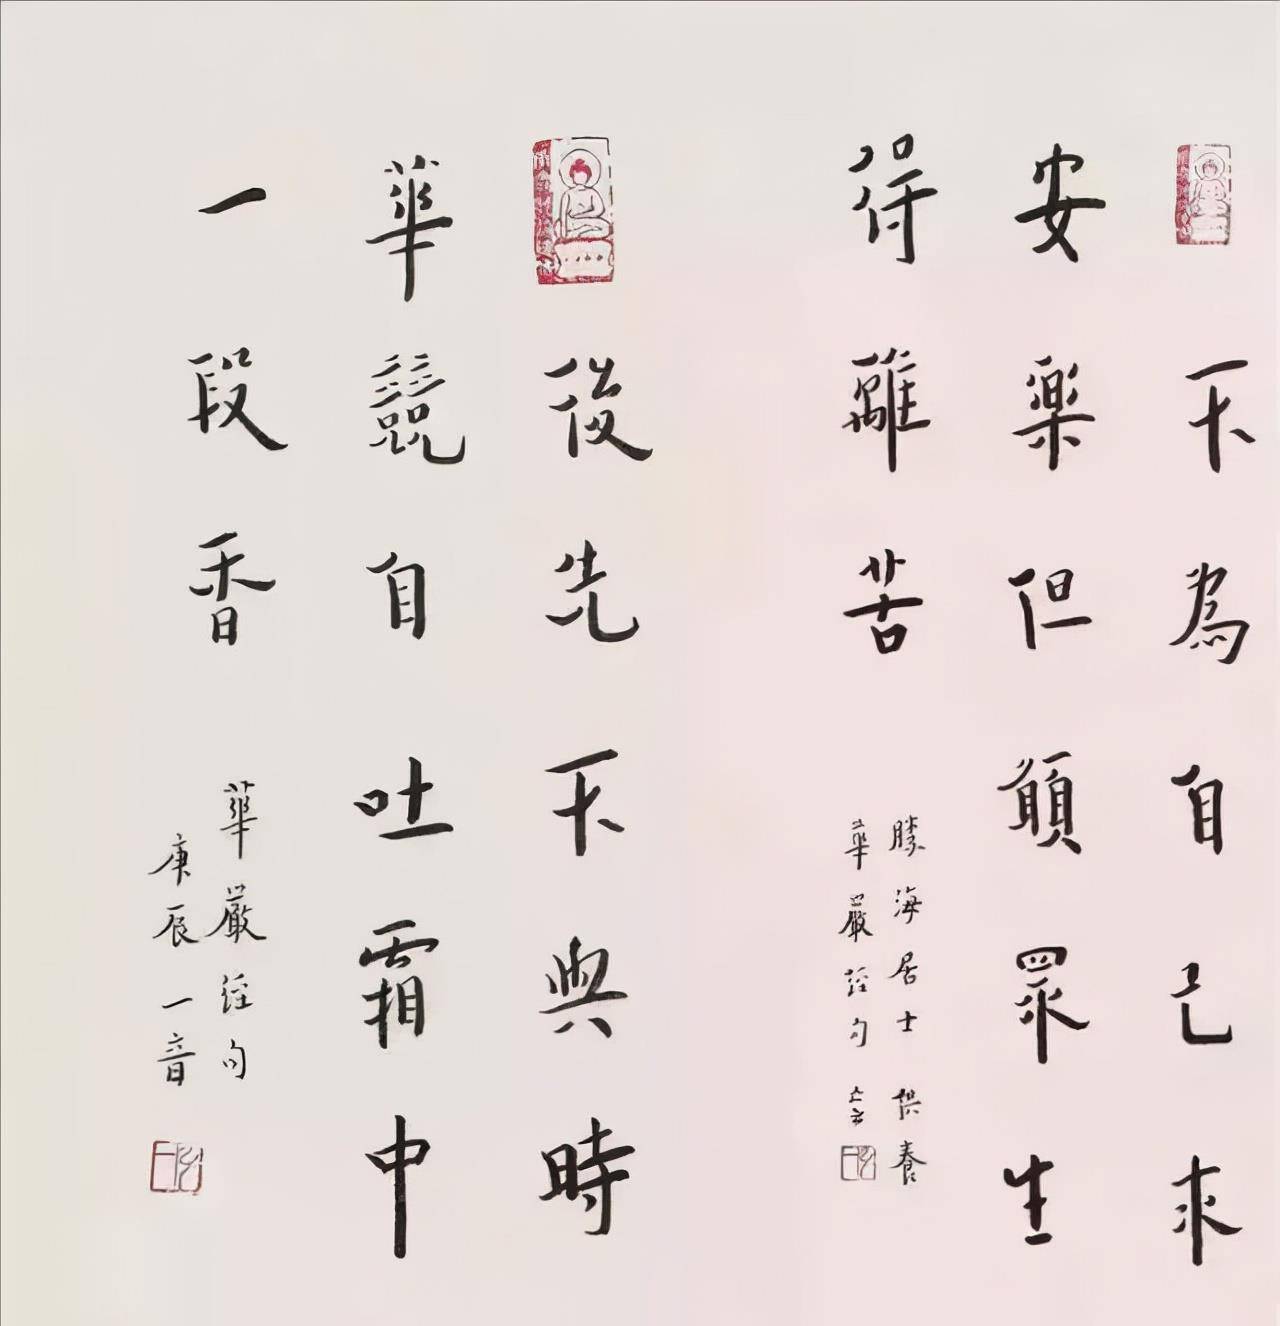 不為自己求
安楽但願眾生
得離苦
勝海居士 供養
華嚴經句
後先不與時
華競自吐霜中
一段香
華嚴經句
庚辰一音